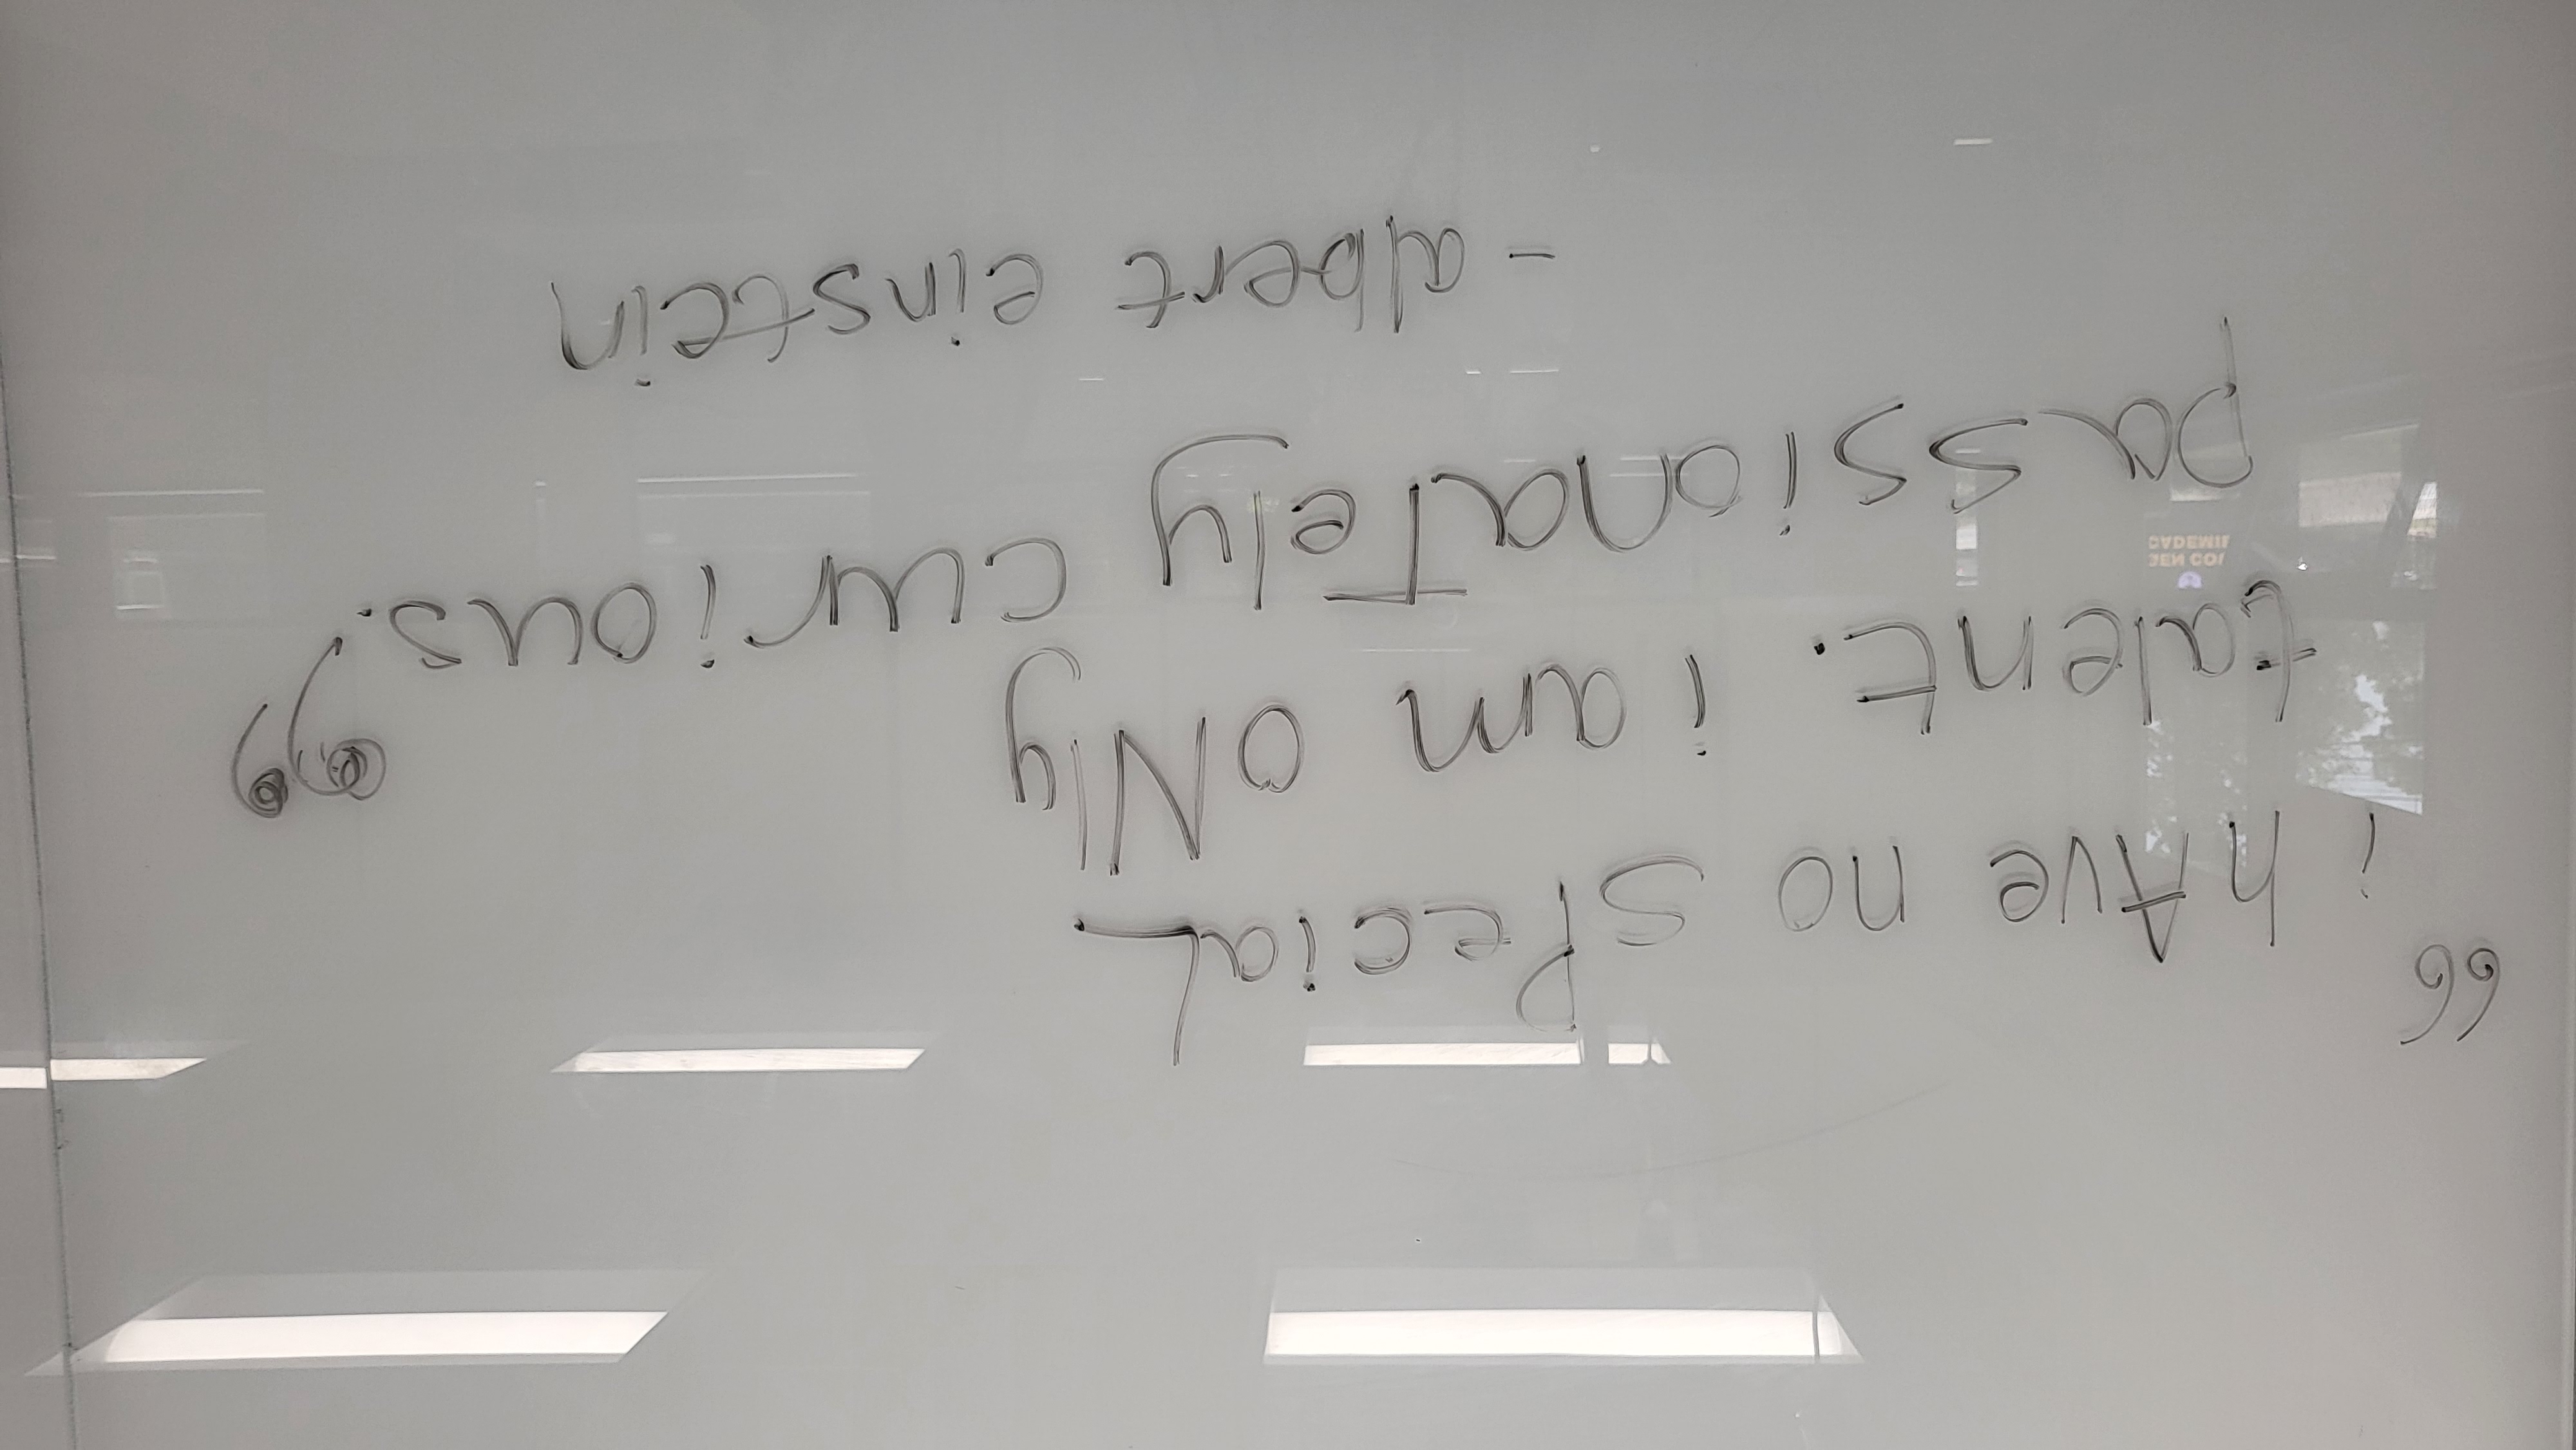 “i hAve no sPeciaL
talent. i am oNly
passionaTely curious.”
- albert einstein